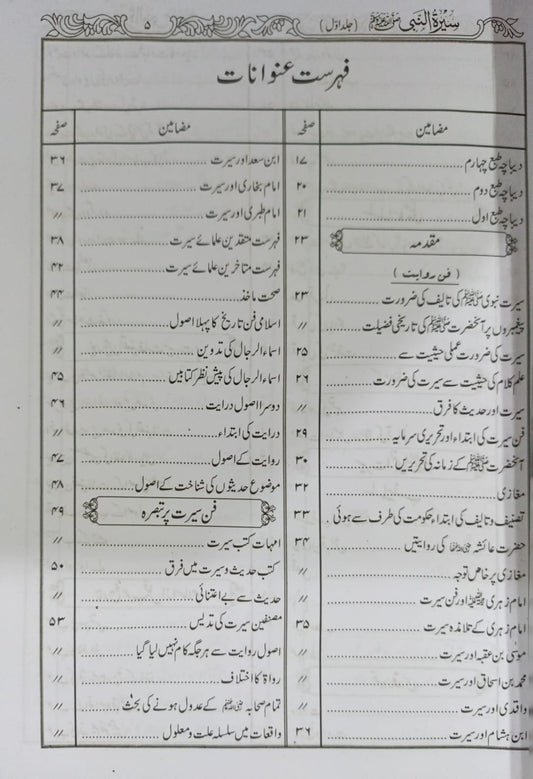 سیرۃ النبی ﷺ (جلد اوّل) ۵
فہرست عنوانات
مضامین صفحہ
دیباچہ طبع چہارم ........ ۱۷
دیباچہ طبع دوم ........ ۲۰
دیباچہ طبع اول ........ ۲۱
مقدمہ ۲۳
(فن روایت)
سیرت نبوی ﷺ کی تالیف کی ضرورت ........ ۲۳
پیغمبروں پر آنحضرت ﷺ کی تاریخی فضیلت //
سیرت کی ضرورت عملی حیثیت سے ........ ۲۵
علم کلام کی حیثیت سے سیرت کی ضرورت ........ ۲۶
سیرت اور حدیث کا فرق ........ //
فن سیرت کی ابتداء اور تحریری سرمایہ ........ ۲۹
آنحضرت ﷺ کے زمانہ کی تحریریں ........ ۳۰
مغازی ........ ۳۲
تصنیف و تالیف کی ابتداء حکومت کی طرف سے ہوئی . ۳۳
حضرت عائشہ ؓ کی روایتیں ۳۴
مغازی پر خاص توجہ ........ //
امام زہری ؒ اور فن سیرت //
امام زہری کے تلامذہ سیرت ........ ۳۵
موسیٰ بن عقبہ اور سیرت ........ //
محمد بن اسحاق اور سیرت ........ //
واقدی اور سیرت ........ //
ابن ہشام اور سیرت ........ ۳۶
مضامین صفحہ
ابن سعد اور سیرت ........ ۳۶
امام بخاری اور سیرت ........ ۳۷
امام طبری اور سیرت ........ //
فہرست متقدمین علمائے سیرت ۳۸
فہرست متاخرین علمائے سیرت ........ ۴۲
صحت ماخذ ........ ۴۴
اسلامی فن تاریخ کا پہلا اصول ........ //
اسماء الرجال کی تدوین ........ //
اسماء الرجال کی پیش نظر کتابیں ........ ۴۵
دوسرا اصول درایت ........ ۴۶
درایت کی ابتداء ........ //
روایت کے اصول ........ ۴۷
موضوع حدیثوں کی شناخت کے اصول ........ ۴۸
فن سیرت پر تبصرہ ۴۹
امہات کتب سیرت ........ //
کتب حدیث و سیرت میں فرق ........ ۵۰
حدیث سے بے اعتنائی ........ //
مصنفین سیرت کی تدلیس ........ ۵۳
اصول روایت سے ہر جگہ کام نہیں لیا گیا ........ //
رواۃ کا اختلاف ........ //
تمام صحابہ ؓ کے عدول ہونے کی بحث ........ //
واقعات میں سلسلہ علت و معلول ........ //